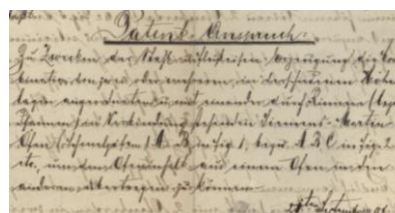 Patent-Anspruch:
Zu Zwecken der Stahl- und Flusseisen-Erzeugung die Com-
bination von zwei oder mehreren, in verschiedenen Höhen-
lagen angeordneten und mit einander durch Rinnen (bezw.
Pfannen) in Verbindung stehenden Siemens-Martin-
Öfen (Schmelzöfen A B in Fig. 1, bezw. A B C in Fig. 2
etc., um den Ofeninhalt aus einem Ofen in den
anderen übertragen zu können.